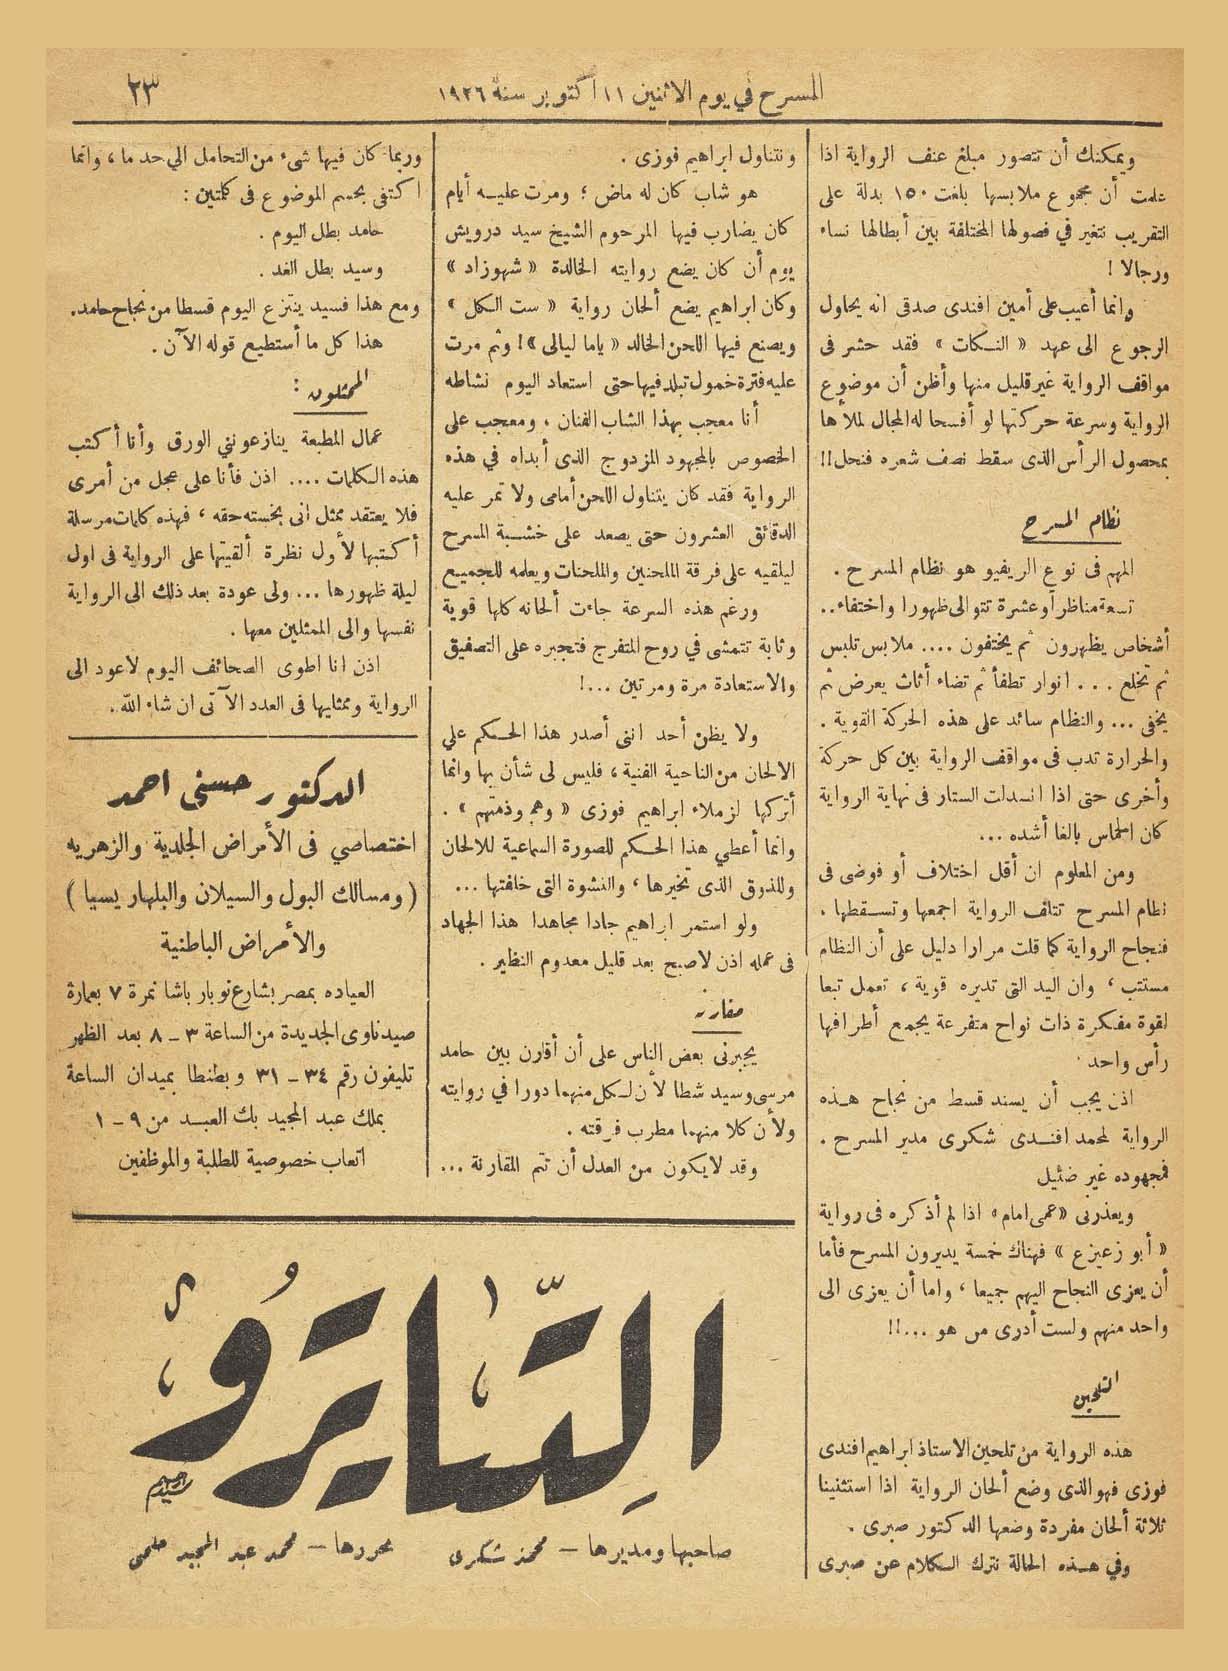 المسرح في يوم الاثنين ١١ أكتوبر سنة ١٩٢٦
٢٣
ويمكنك أن تتصور مبلغ عنف الرواية اذا
علمت أن مجموع ملابسها بلغت ١٥٠ بدلة على
التقريب تتغير في فصولها المختلفة بين أبطالها نساء
ورجالا !
وانما أعيب على أمين افندى صدقى انه يحاول
الرجوع الى عهد « النكات » فقد حشر فى
مواقف الرواية غير قليل منها وأظن أن موضوع
الرواية وسرعة حركتها لو أفسحا له المجال لملأها
بمحصول الرأس الذى سقط نصف شعره فنحل!!
نظام المسرح
المهم فى نوع الريفيو هو نظام المسرح .
تسعة مناظر أو عشرة تتوالى ظهورا واختفاء..
أشخاص يظهرون ثم يختفون .... ملابس تلبس
ثم تخلع ... انوار تطفأ ثم تضاء أثاث يعرض ثم
يخفى ... والنظام سائد على هذه الحركة القوية .
والحرارة تدب فى مواقف الرواية بين كل حركة
وأخرى حتى اذا انسدلت الستار فى نهاية الرواية
كان الحماس بالغا أشده ...
ومن المعلوم ان أقل اختلاف أو فوضى فى
نظام المسرح تتلف الرواية اجمعها وتسقطها .
فنجاح الرواية كما قلت مرارا دليل على أن النظام
مستتب ، وان اليد التى تديره قوية ، تعمل تبعا
لقوة مفكرة ذات نواح متفرعة يجمع أطرافها
رأس واحد .
اذن يجب أن يسند قسط من نجاح هذه
الرواية لمحمد افندى شكرى مدير المسرح .
فمجهوده غير ضئيل
ويعذرنى «عمى امام» اذا لم أذكره فى رواية
« أبو زعيزع » فهناك خمسة يديرون المسرح فأما
أن يعزى النجاح اليهم جميعا ، واما أن يعزى الى
واحد منهم ولست أدرى من هو ...!!
التلحين
هذه الرواية من تلحين الاستاذ ابراهيم افندى
فوزى فهو الذى وضع ألحان الرواية اذا استثنينا
ثلاثة ألحان مفردة وضعها الدكتور صبرى .
وفي هذه الحالة نترك الكلام عن صبرى
ونتناول ابراهيم فوزى .
هو شاب كان له ماض ؛ ومرت عليه أيام
كان يضارب فيها المرحوم الشيخ سيد درويش
يوم أن كان يضع روايته الخالدة « شهوزاد »
وكان ابراهيم يضع ألحان رواية « ست الكل »
ويصنع فيها اللحن الخالد « ياما ليالى »! وثم مرت
عليه فترة خمول تبلد فيها حتى استعاد اليوم نشاطه
أنا معجب بهذا الشاب الفنان ، ومعجب على
الخصوص بالمجهود المزدوج الذى أبداه في هذه
الرواية فقد كان يتناول اللحن أمامى ولا تمر عليه
الدقائق العشرون حتى يصعد على خشبة المسرح
ليلقيه على فرقة الملحنين والملحنات ويعلمه للجميع
ورغم هذه السرعة جاءت ألحانه كلها قوية
وثابة تتمشى في روح المتفرج فتجبره على التصفيق
والاستعادة مرة ومرتين ...!
ولا يظن أحد انى أصدر هذا الحكم علي
الالحان من الناحية الفنية ، فليس لى شأن بها وانما
أتركها لزملاء ابراهيم فوزى « وهم وذمتهم » .
وانما أعطي هذا الحكم للصورة السماعية للالحان
وللذوق الذى تخيرها ، والنشوة التى خلفتها ...
ولو استمر ابراهيم جادا مجاهدا هذا الجهاد
فى عمله اذن لاصبح بعد قليل معدوم النظير .
مقارنة
يجبرنى بعض الناس على أن أقارن بين حامد
مرسى وسيد شطا لأن لكل منهما دورا في روايته
ولأن كلا منهما مطرب فرقته .
وقد لا يكون من العدل أن تتم المقارنة ...
وربما كان فيها شىء من التحامل الي حد ما ، وانما
اكتفى بحسم الموضوع فى كلمتين :
حامد بطل اليوم .
وسيد بطل الغد .
ومع هذا فسيد ينتزع اليوم قسطا من نجاح حامد.
هذا كل ما أستطيع قوله الآن .
الممثلون :
عمال المطبعة ينازعونني الورق وأنا أكتب
هذه الكلمات .... اذن فأنا على عجل من أمرى
فلا يعتقد ممثل انى بخسته حقه ، فهذه كلمات مرسلة
أكتبها لأول نظرة ألقيتها على الرواية فى اول
ليلة ظهورها ... ولى عودة بعد ذلك الى الرواية
نفسها والى الممثلين معها .
اذن انا اطوى الصحائف اليوم لاعود الى
الرواية وممثليها فى العدد الآتى ان شاء الله .
الدكتور حسنى احمد
اختصاصي فى الأمراض الجلدية والزهريه
( ومسالك البول والسيلان والبلهارسيا )
والأمراض الباطنية
العياده بمصر بشارع نوبار باشا نمرة ٧ بعمارة
صيدناوى الجديدة من الساعة ٣ - ٨ بعد الظهر
تليفون رقم ٣٤ - ٣١ وبطنطا بميدان الساعة
بملك عبد المجيد بك العبد من ٩ - ١
اتعاب خصوصية للطلبة والموظفين
التياترو
صاحبها ومديرها - محمد شكرى
محررها - محمد عبد المجيد حلمى